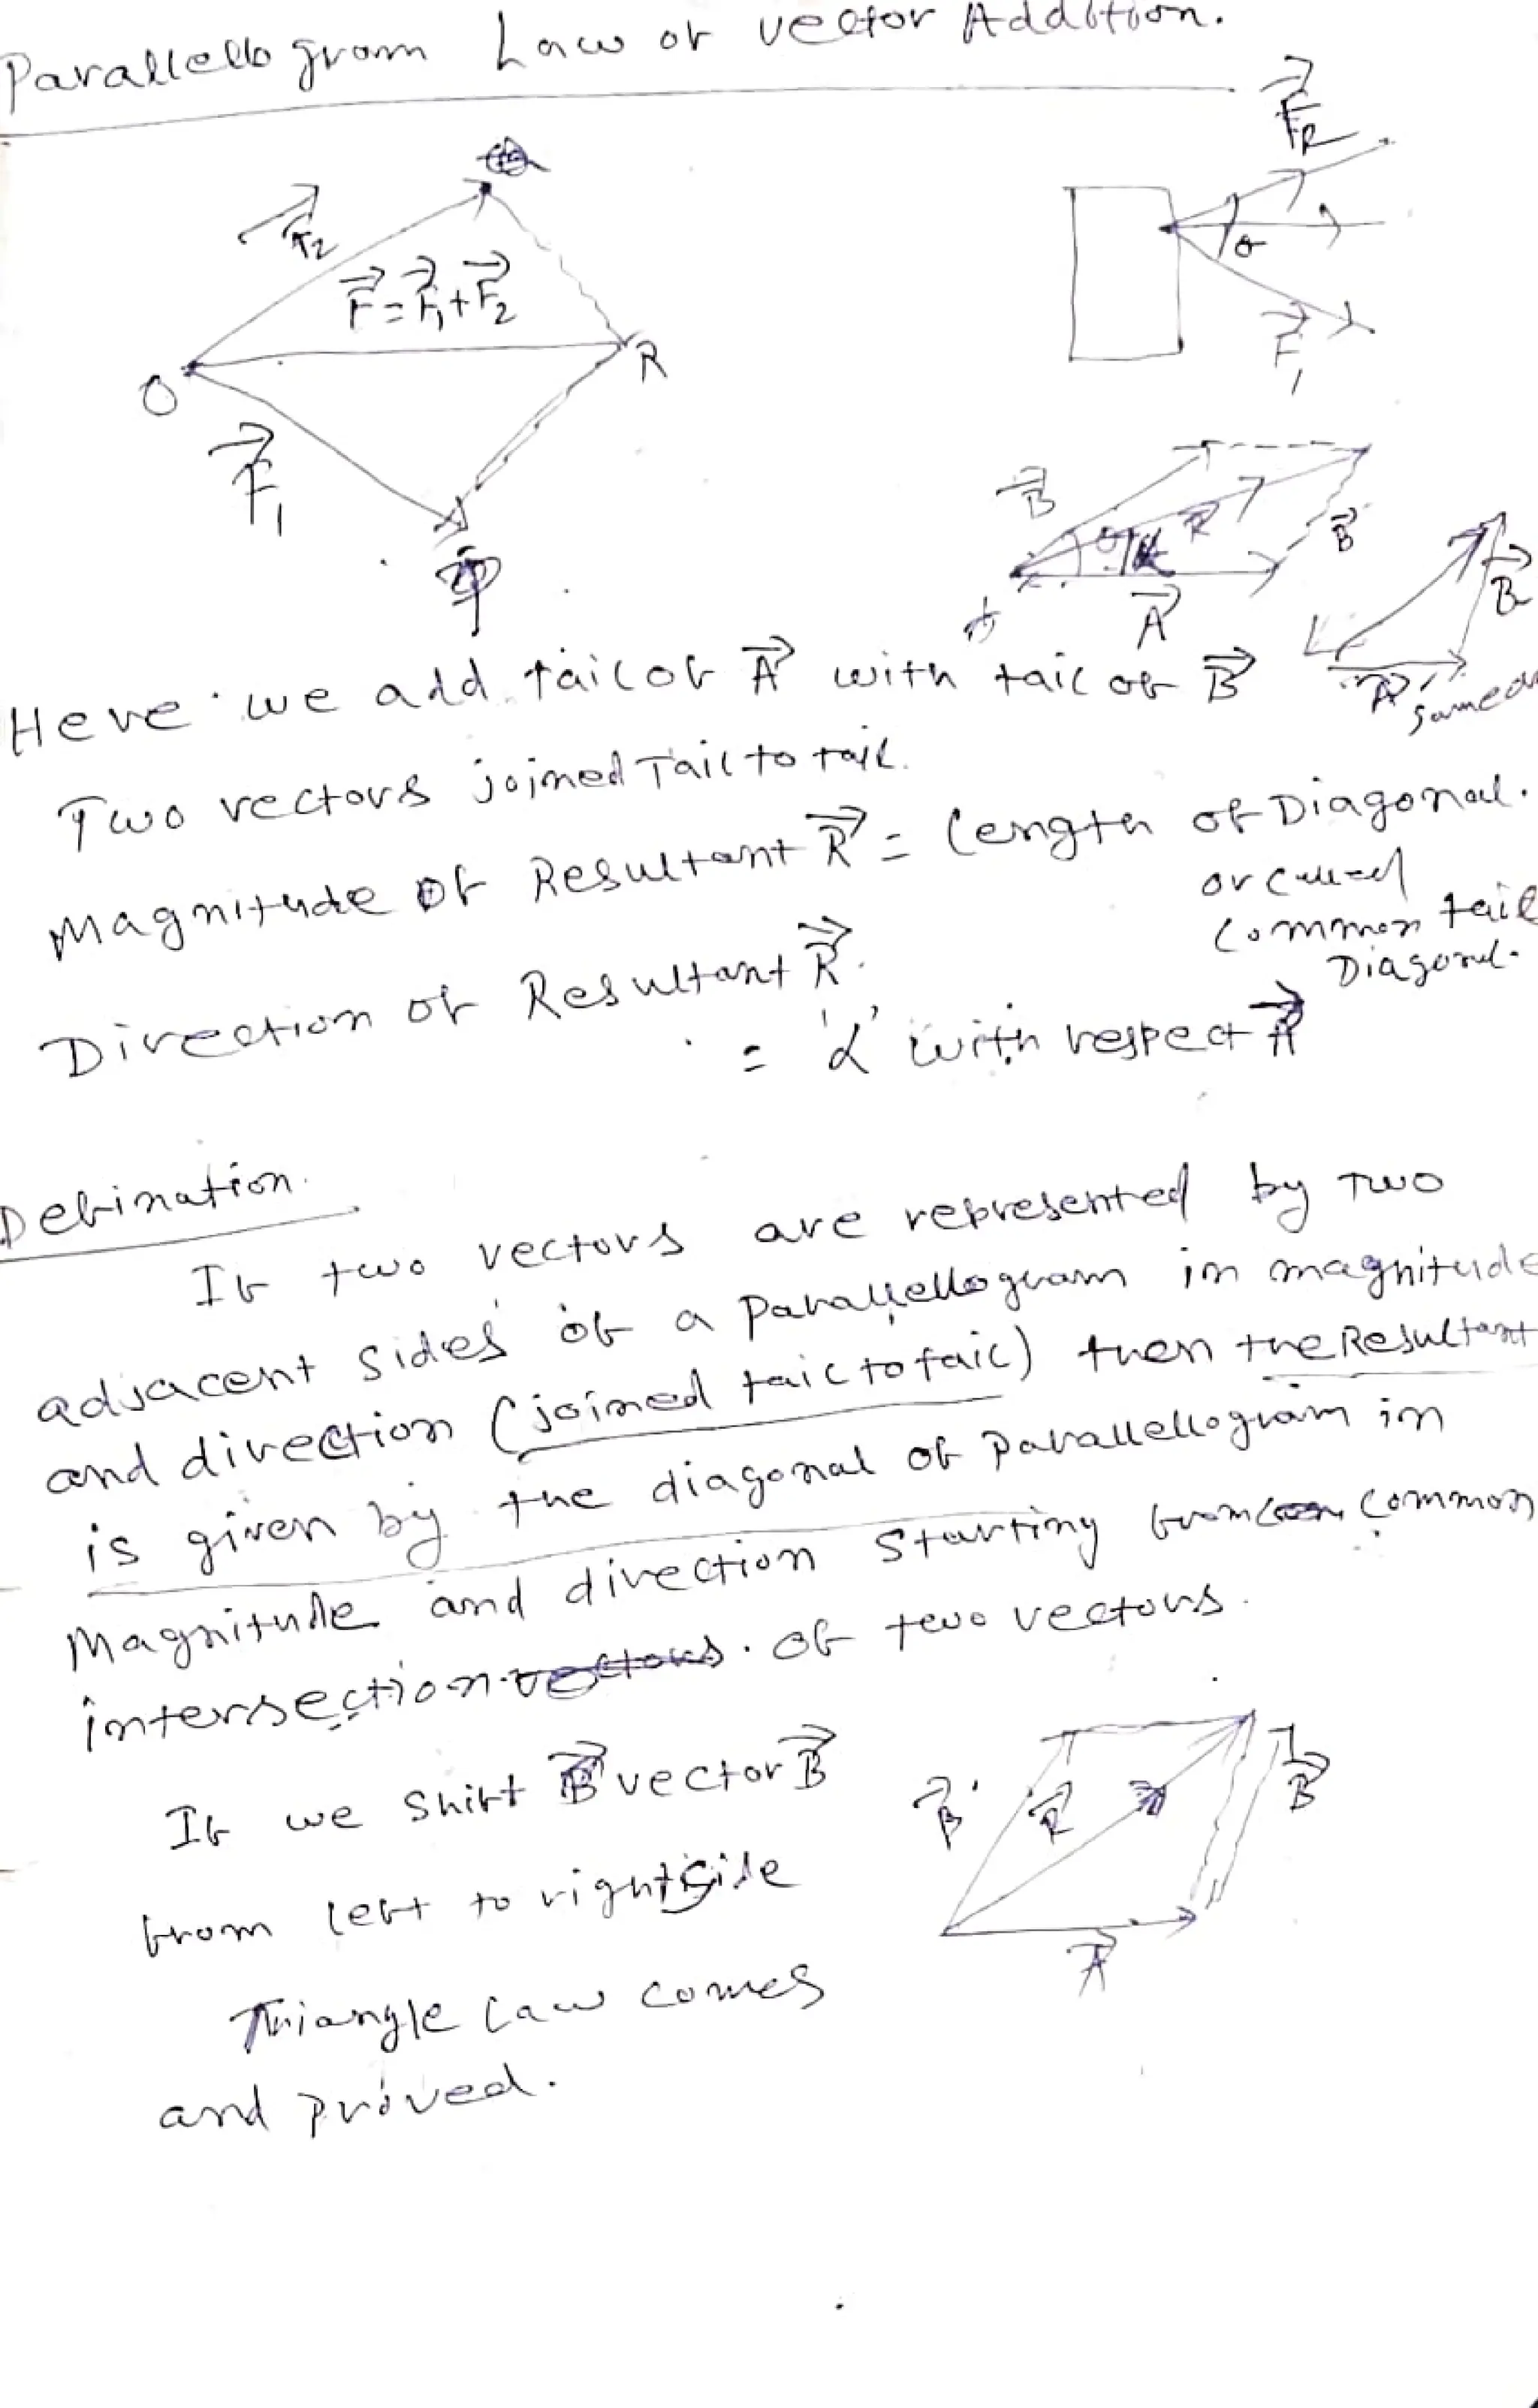 Parallellogram Law of vector Addition.
F₂
F = F₁ + F₂
O
R
F₁
P
F_R
θ
F₁
B
R
B
A
B
A
same
Here we add tail of A with tail of B
Two vectors joined Tail to tail.
Magnitude of Resultant R = length of Diagonal.
or called
common tail
Diagonal.
Direction of Resultant R.
= 'α' with respect A
Defination.
If two vectors are represented by two
adjacent sides of a Parallellogram in magnitude
and direction (joined tail to tail) then the Resultant
is given by the diagonal of Parallellogram in
Magnitude and direction Starting from common
intersection vectors. of two vectors.
If we Shift B vector B
from left to right Side
Triangle Law comes
and proved.
B
R
B
A